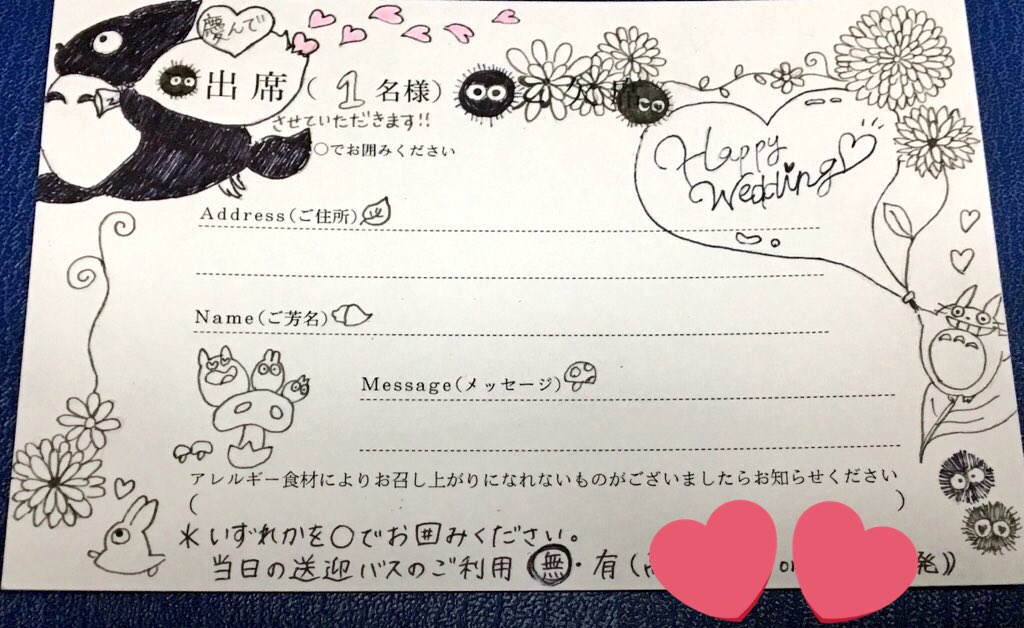 慶んで
出席（1名様）
させていただきます!!
○でお囲みください
Happy
Wedding
Address（ご住所）
Name（ご芳名）
Message（メッセージ）
アレルギー食材によりお召し上がりになれないものがございましたらお知らせください
（ ）
＊いずれかを○でお囲みください。
当日の送迎バスのご利用 無・有（ 発）